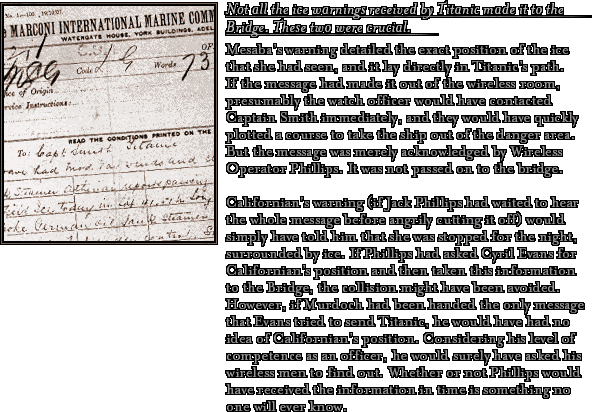 No. 1.—100. 19/10/07.
MARCONI INTERNATIONAL MARINE COMM
WATERGATE HOUSE, YORK BUILDINGS, ADEL
Code Words 73
Office of Origin
Service Instructions:
READ THE CONDITIONS PRINTED ON THE
To: Capt Smith Titanic
have had mod. var winds and
Steamer Athenai reports passing
Ice today in Lat
German oil tank steamer
Not all the ice warnings received by Titanic made it to the
Bridge. These two were crucial.
Mesaba's warning detailed the exact position of the ice
that she had seen, and it lay directly in Titanic's path.
If the message had made it out of the wireless room,
presumably the watch officer would have contacted
Captain Smith immediately, and they would have quickly
plotted a course to take the ship out of the danger area.
But the message was merely acknowledged by Wireless
Operator Phillips. It was not passed on to the bridge.
Californian's warning (if Jack Phillips had waited to hear
the whole message before angrily cutting it off) would
simply have told him that she was stopped for the night,
surrounded by ice. If Phillips had asked Cyril Evans for
Californian's position and then taken this information
to the Bridge, the collision might have been avoided.
However, if Murdoch had been handed the only message
that Evans tried to send Titanic, he would have had no
idea of Californian's position. Considering his level of
competence as an officer, he would surely have asked his
wireless men to find out. Whether or not Phillips would
have received the information in time is something no
one will ever know.